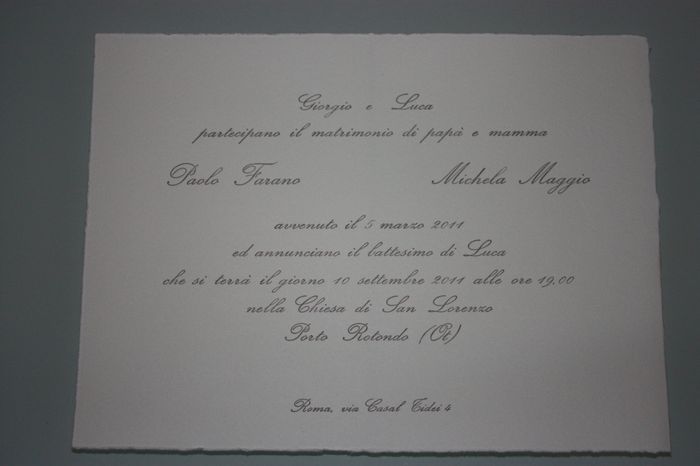 Giorgio e Luca
partecipano il matrimonio di papà e mamma
Paolo Farano Michela Maggio
avvenuto il 5 marzo 2011
ed annunciano il battesimo di Luca
che si terrà il giorno 10 settembre 2011 alle ore 19,00
nella Chiesa di San Lorenzo
Porto Rotondo (Ot)
Roma, via Casal Tidei 4